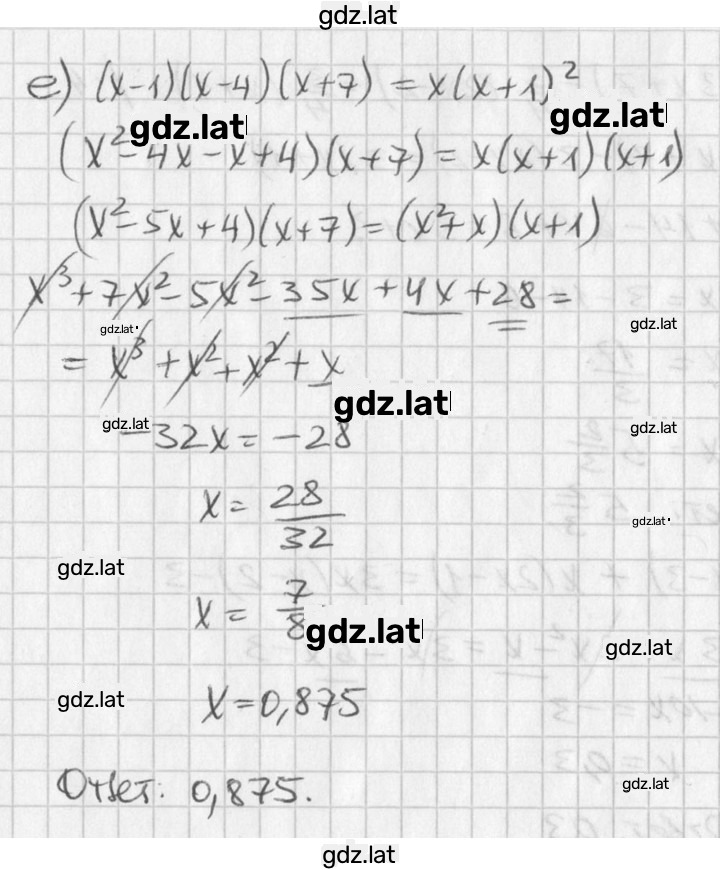 gdz.lat
е) (x-1)(x-4)(x+7) = x(x+1)²
gdz.lat
gdz.lat
(x²-4x-x+4)(x+7) = x(x+1)(x+1)
(x²-5x+4)(x+7) = (x²+x)(x+1)
x³+7x²-5x²-35x+4x+28 =
gdz.lat
gdz.lat
= x³+x²+x²+x
gdz.lat
gdz.lat
gdz.lat
-32x = -28
x = 28/32
gdz.lat
gdz.lat
x = 7/8
gdz.lat
gdz.lat
gdz.lat
x = 0,875
gdz.lat
Ответ: 0,875.
gdz.lat